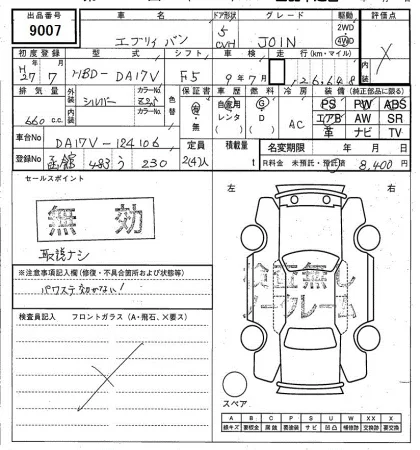 出品番号 車名 ドア形状 グレード 駆動 評価点
9007 エブリィ バン 5 CVH JOIN 2WD 4WD
初度登録 型式 シフト 車検 走行(km・マイル) 内装
H27/7 HBD-DA17V F5 9年7月 126,648
排気量 外装 内装 カラーNo. カラーNo. 色替 保証書 車歴 燃料 冷房 装備(純正部品に限る)
660 c.c. シルバー Z2S 有・無 自家用 レンタ G D AC PS PW ABS
エアB AW SR
革 ナビ TV
車台No DA17V-124106 定員 積載量 名変期限 年 月 日
登録No 函館 483 う 230 2(4)人 t R料金 未預託・預託済 8,400円
セールスポイント
無効
取説ナシ
※注意事項記入欄(修復・不具合箇所および状態等)
パワステ効かない!
検査員記入 フロントガラス(A・飛石、X要ス)
左 右
検査無し
ノークレーム
スペア
A B C P S U W X XX
線キズ 要板金 腐蝕 要塗装 サビ 凹凸 補修跡 要交換 交換跡